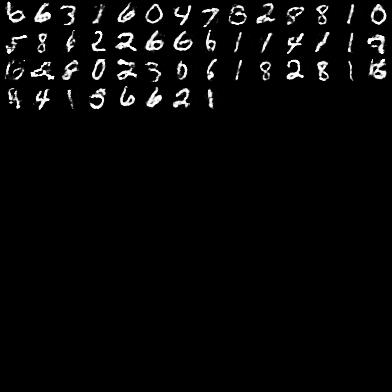 6 6 3 1 6 0 4 7 8 2 8 8 1 0
5 8 1 2 2 6 6 6 1 1 4 1 1 3
2 8 0 2 3 0 6 1 8 2 8 1
4 4 1 5 6 6 2 1